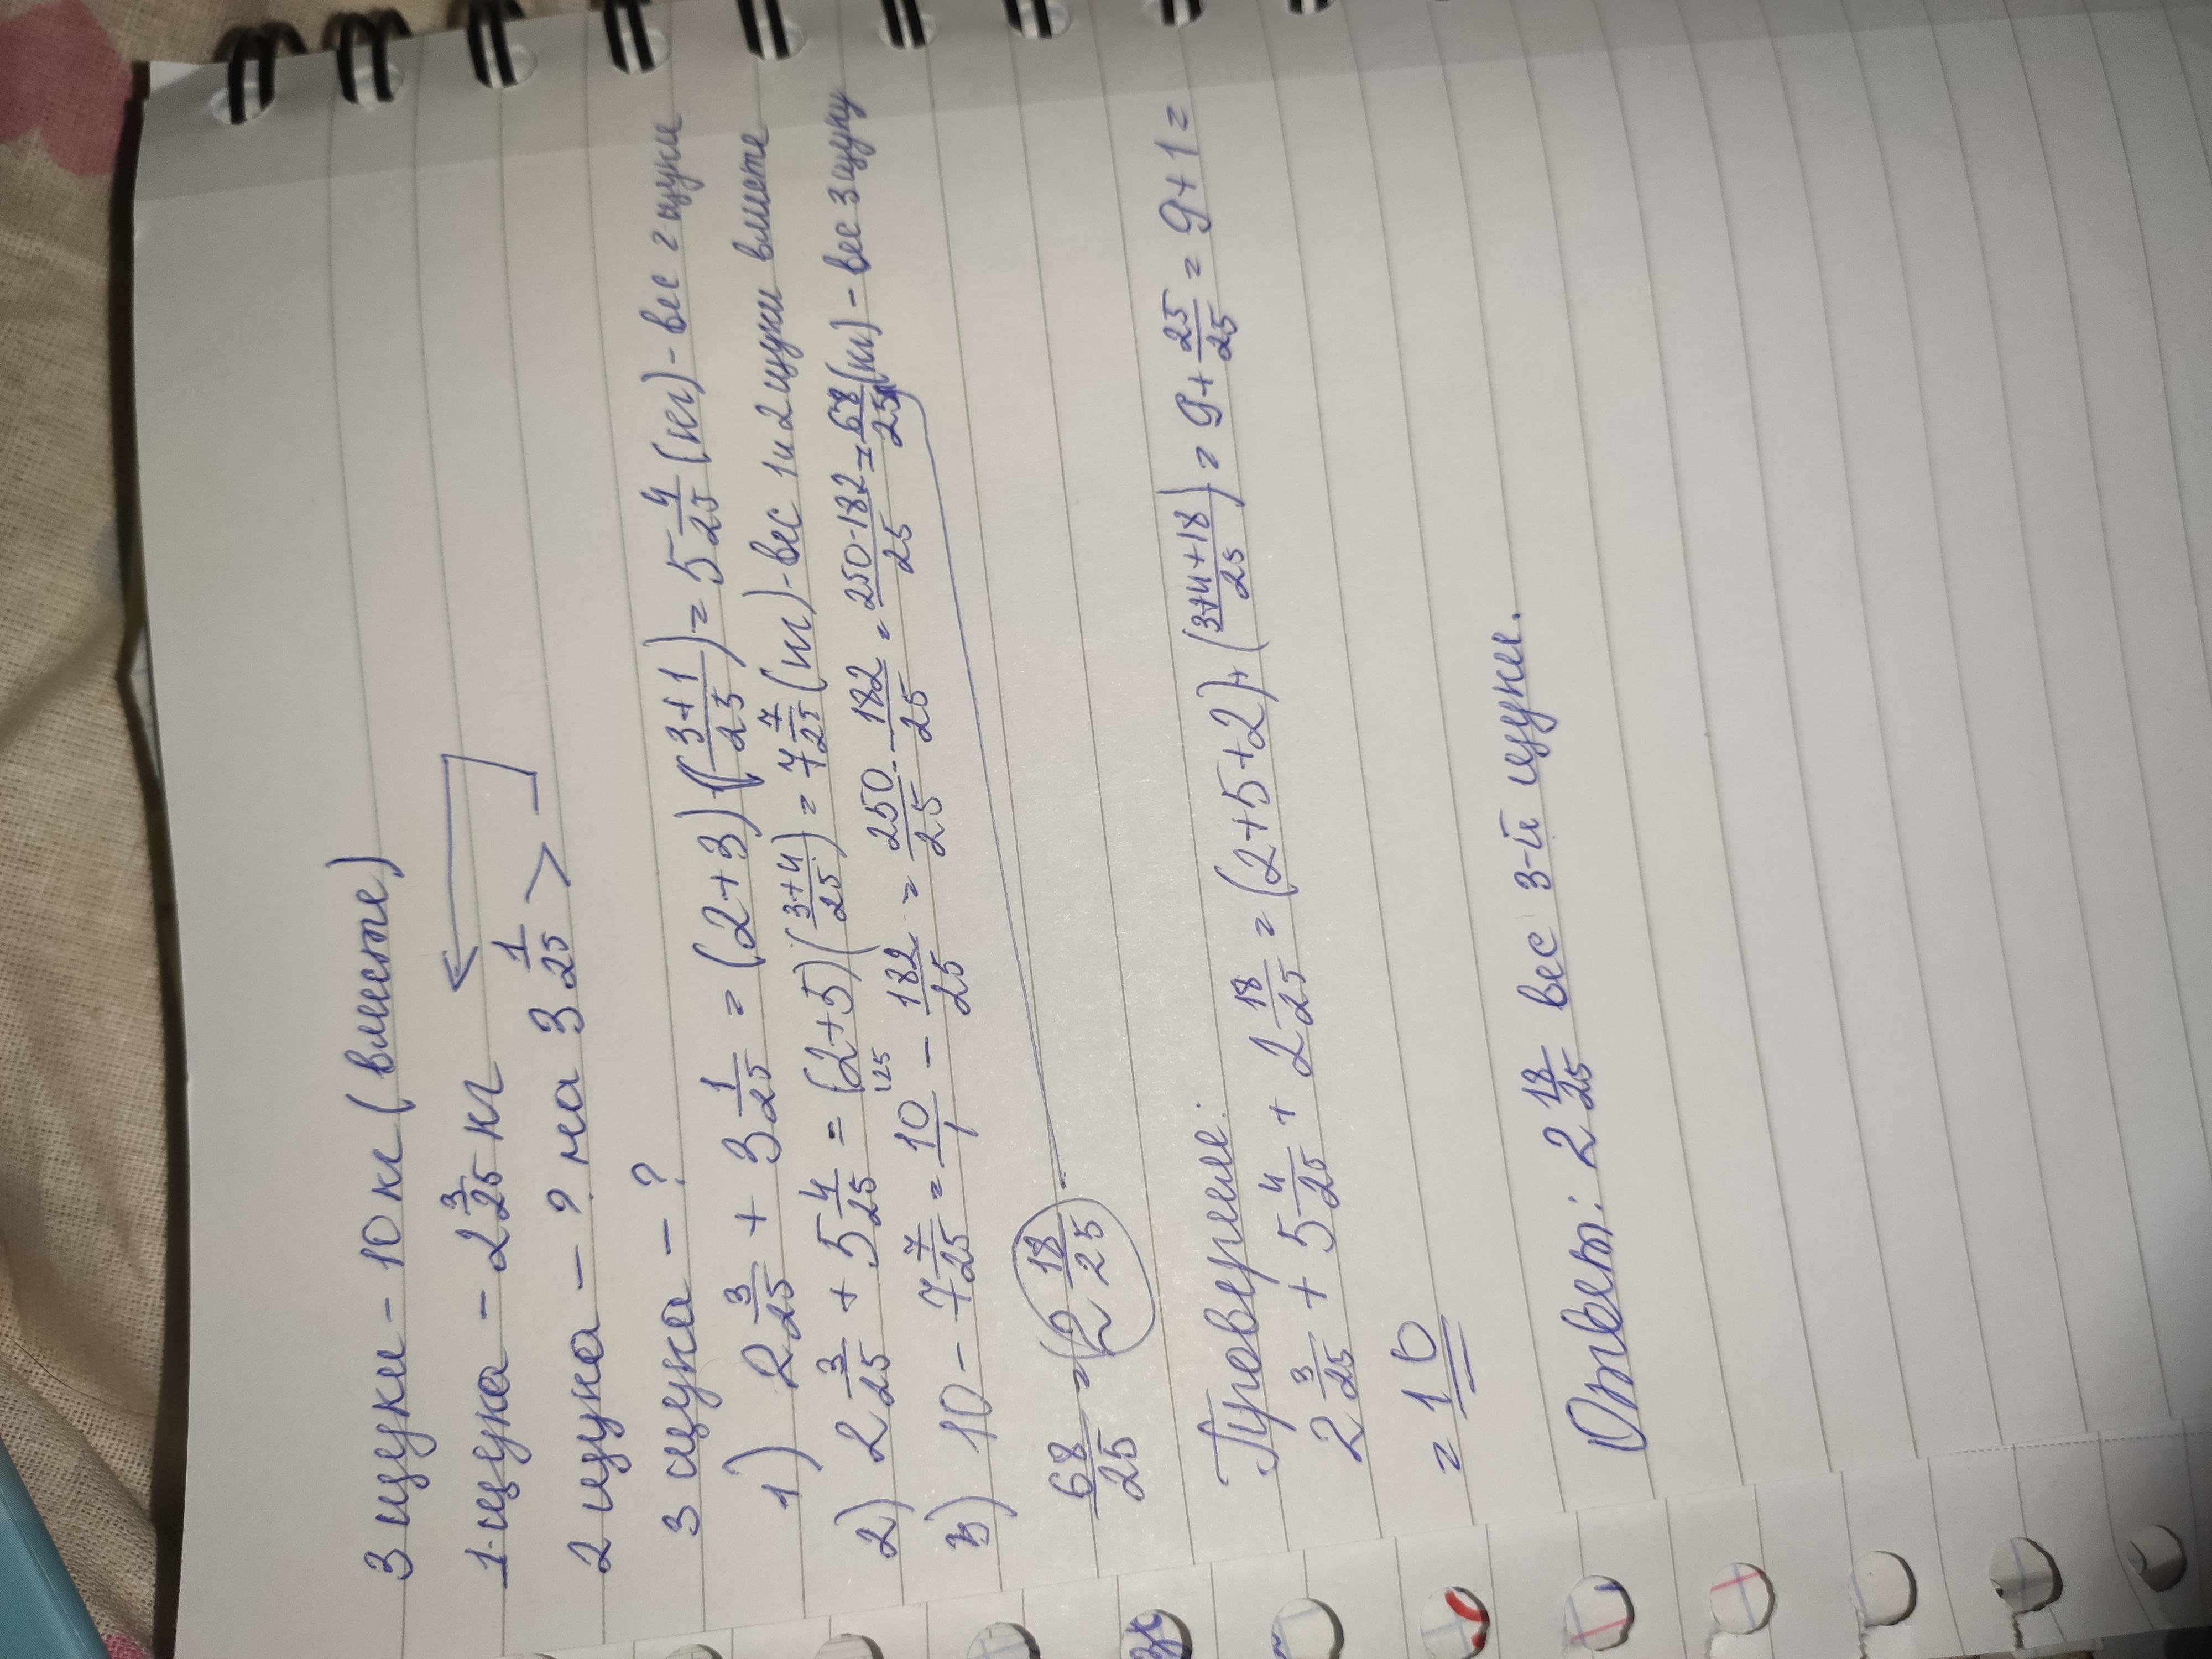 3 щуки - 10 кг (вместе)
1 щука - 2 3/25 кг
2 щука - ? на 3 1/25 >
3 щука - ?
1) 2 3/25 + 3 1/25 = (2+3)+((3+1)/25) = 5 4/25 (кг) - вес 2 щуки
2) 2 3/25 + 5 4/25 = (2+5)((3+4)/25) = 7 7/25 (кг) - вес 1 и 2 щуки вместе
3) 10 - 7 7/25 = 10/1 \25 - 182/25 = 250/25 - 182/25 = (250-182)/25 = 68/25 (кг) - вес 3 щуку
68/25 = (2 18/25)
Проверяем:
2 3/25 + 5 4/25 + 2 18/25 = (2+5+2)+((3+4+18)/25) = 9+25/25 = 9+1 =
= 10
Ответ: 2 18/25 вес 3-й щуки.